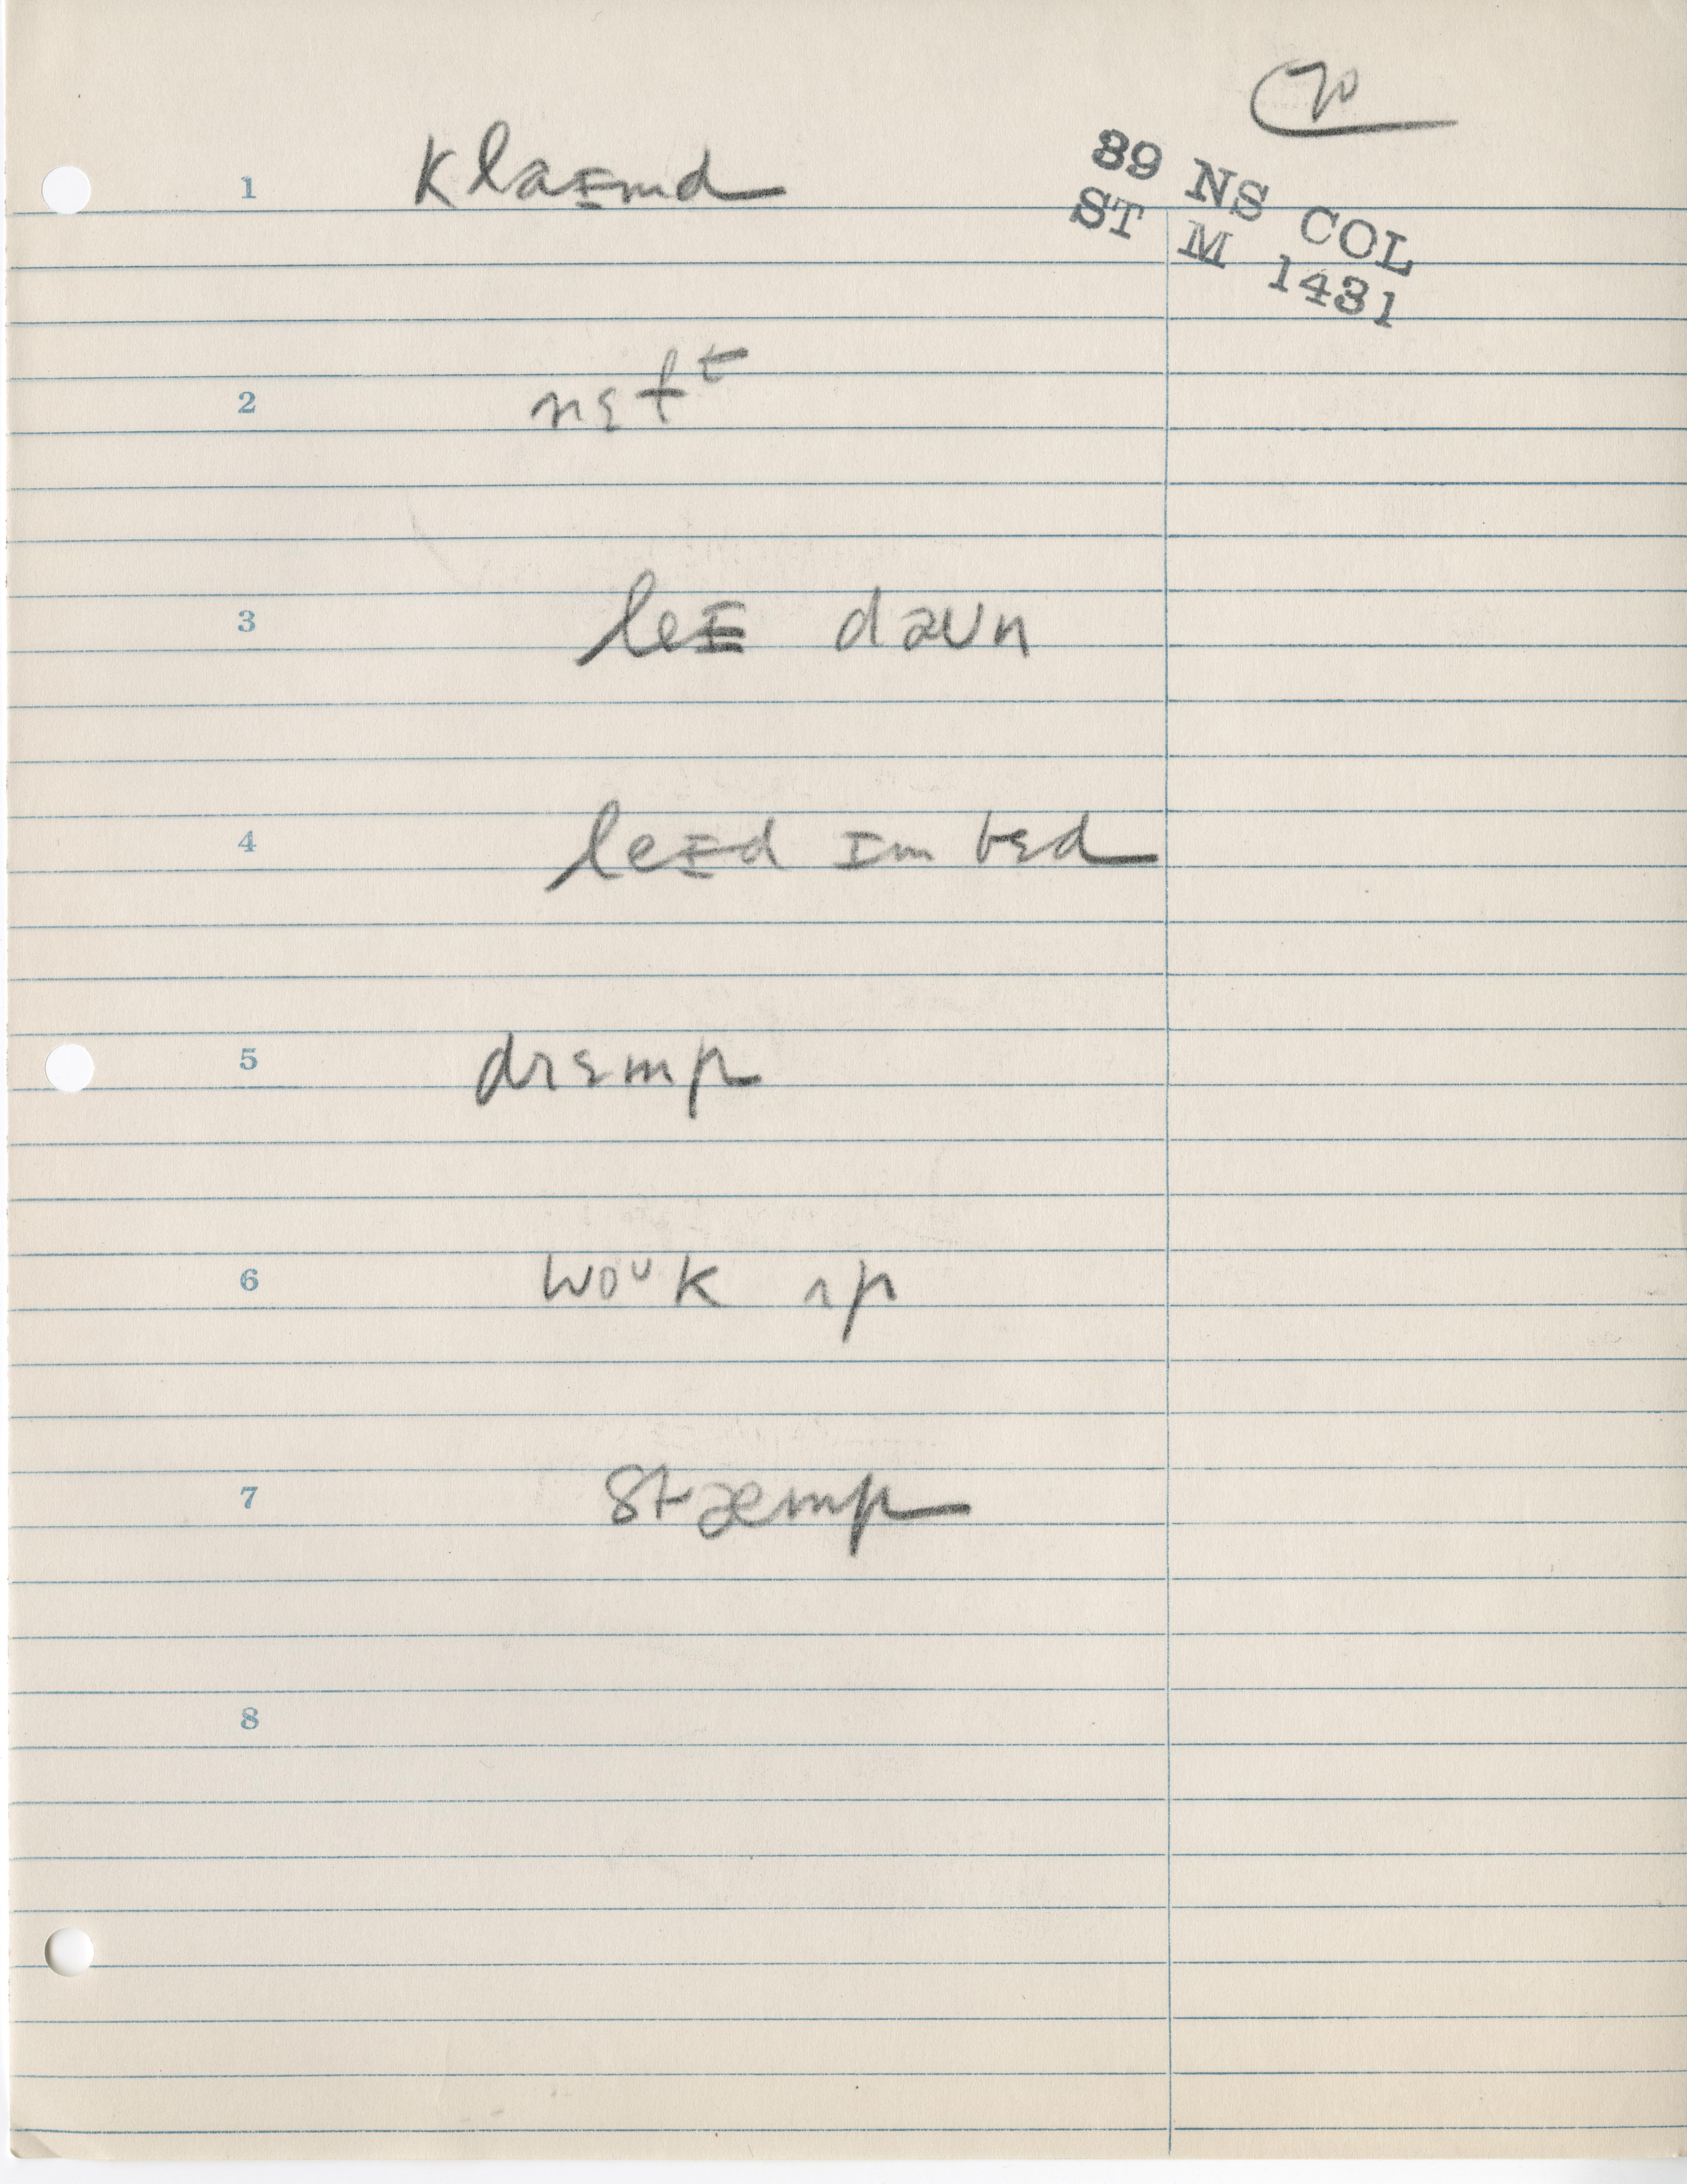 70
39 NS COL
ST M 1431
1 klaɪmd
2 nɛtᵗ
3 leɪ daʊn
4 leɪd ɪm bɛd
5 drɛmp
6 woᶸk ʌp
7 stæmp
8